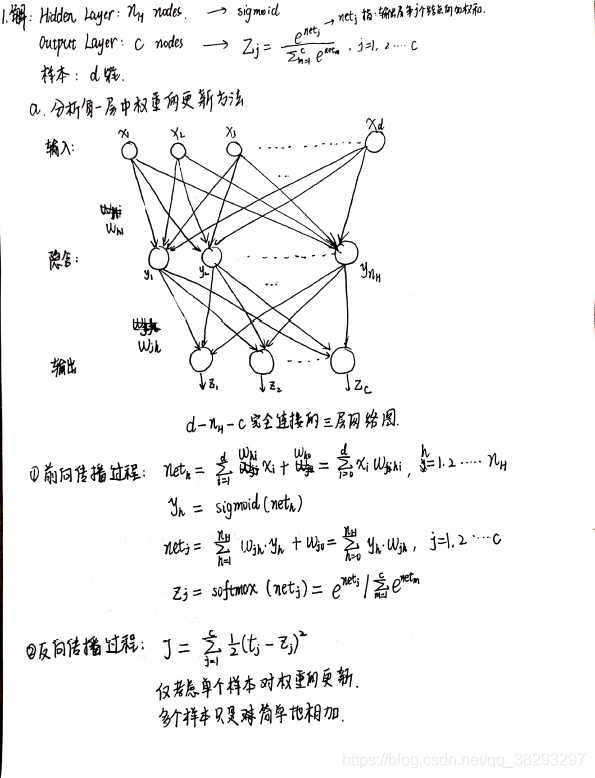 1.解: Hidden Layer: n_H nodes. → sigmoid
net_j 指: 输出层第j个结点的加权和.
Output Layer: c nodes → Z_j = e^{net_j} / Σ_{m=1}^{c} e^{net_m} , j=1,2…c
样本: d维.
a. 分析每一层中权重的更新方法.
输入: x_1 x_2 x_3 ……… x_d
w_hi
隐含: y_1 y_2 … y_{n_H}
w_jh
输出 z_1 z_2 z_c
d-n_H-c 完全连接的三层网络图.
①前向传播过程: net_h = Σ_{i=1}^{d} w_hi x_i + w_h0 = Σ_{i=0}^{d} x_i w_hi , h=1,2……n_H
y_h = sigmoid(net_h)
net_j = Σ_{h=1}^{n_H} w_jh·y_h + w_j0 = Σ_{h=0}^{n_H} y_h·w_jh , j=1,2…c
z_j = softmax(net_j) = e^{net_j} / Σ_{m=1}^{c} e^{net_m}
②反向传播过程: J = Σ_{j=1}^{c} ½(t_j - z_j)²
仅考虑单个样本对权重的更新.
多个样本只是简单地相加.
https://blog.csdn.net/qq_38293297